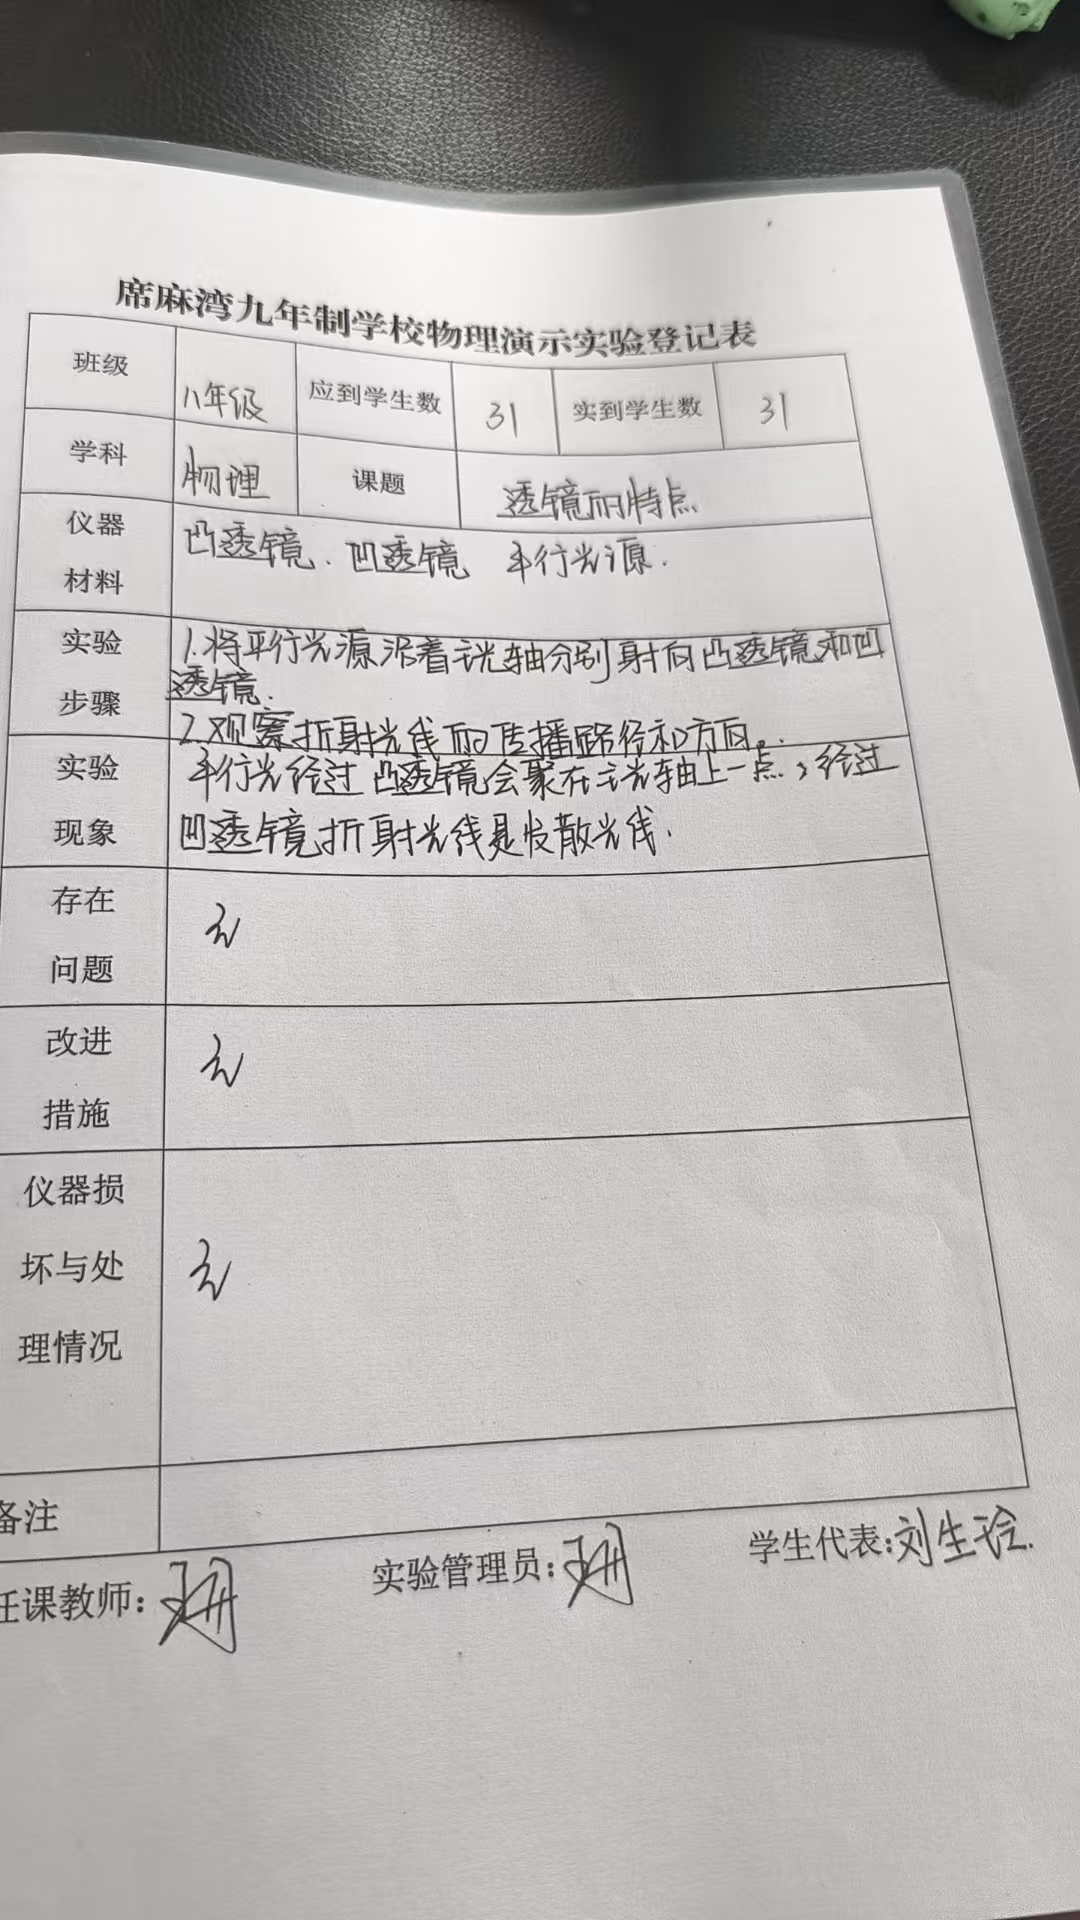 席麻湾九年制学校物理演示实验登记表
班级 八年级 应到学生数 31 实到学生数 31
学科 物理 课题 透镜的特点
仪器材料 凸透镜、凹透镜 平行光源.
实验步骤 1.将平行光源沿着主光轴分别射向凸透镜和凹
透镜.
2.观察折射光线的传播路径和方向.
实验现象 平行光经过凸透镜会聚在主光轴上一点,经过
凹透镜折射光线是发散光线.
存在问题 无
改进措施 无
仪器损坏与处理情况 无
备注
任课教师: 实验管理员: 学生代表:刘生